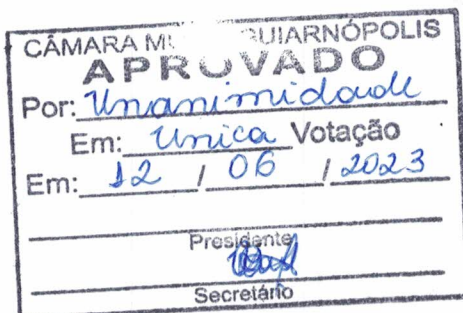 CÂMARA MU UIARNÓPOLIS
APROVADO
Por: Unanimidade
Em: Unica Votação
Em: 12 / 06 / 2023
Presidente
Secretário